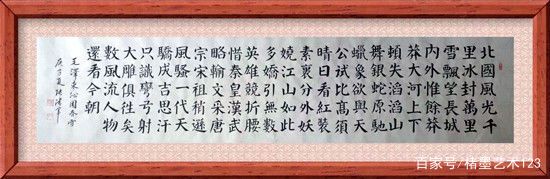 北國風光千
里冰封萬里
雪飄望長城
內外惟餘莽
莽大河上下
頓失滔滔山
舞銀蛇原馳
蠟象欲與天
公試比高須
晴日看紅裝
素裹分外妖
嬈江山如此
多嬌引無數
英雄競折腰
惜秦皇漢武
略輸文采唐
宗宋祖稍遜
風騷一代天
驕成吉思汗
只識彎弓射
大雕俱往矣
數風流人物
還看今朝
毛澤東沁園春雪
庚子夏
百家号/楮墨艺术123